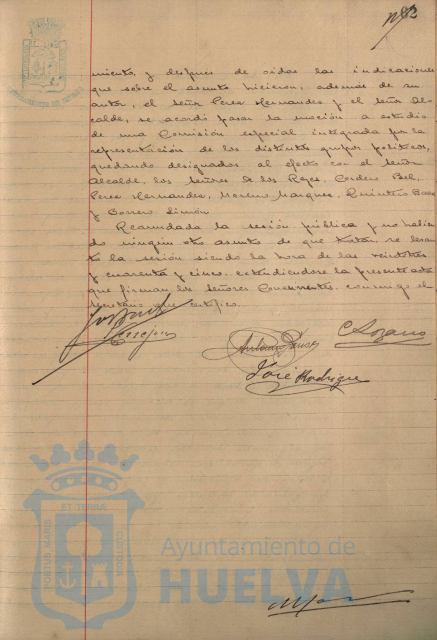 miento, y despues de oidas las indicaciones
que sobre el asunto hicieron, ademas de su
autor, el Señor Perez Hernandez y el Señor Al-
calde, se acordó pasar la moción a estudio
de una Comisión especial integrada por la
representación de los distintos grupos politicos,
quedando designados al efecto con el Señor
Alcalde, los Señores de los Reyes, Cordero Bel,
Perez Hernandez, Moreno Marquez, Quintero Baez
y Borrero Limón
Reanudada la sesión pública y no habien-
do ningun otro asunto de que tratar se levan-
tó la sesión siendo la hora de las veintitres
y cuarenta y cinco, extendiendose la presente acta
que firman los Señores Concurrentes, conmigo el
secretario que certifico.
C Lozano
José Rodrigue
ET TERRAE
PORTUS MARIS
CUSTODIA
Ayuntamiento de
HUELVA